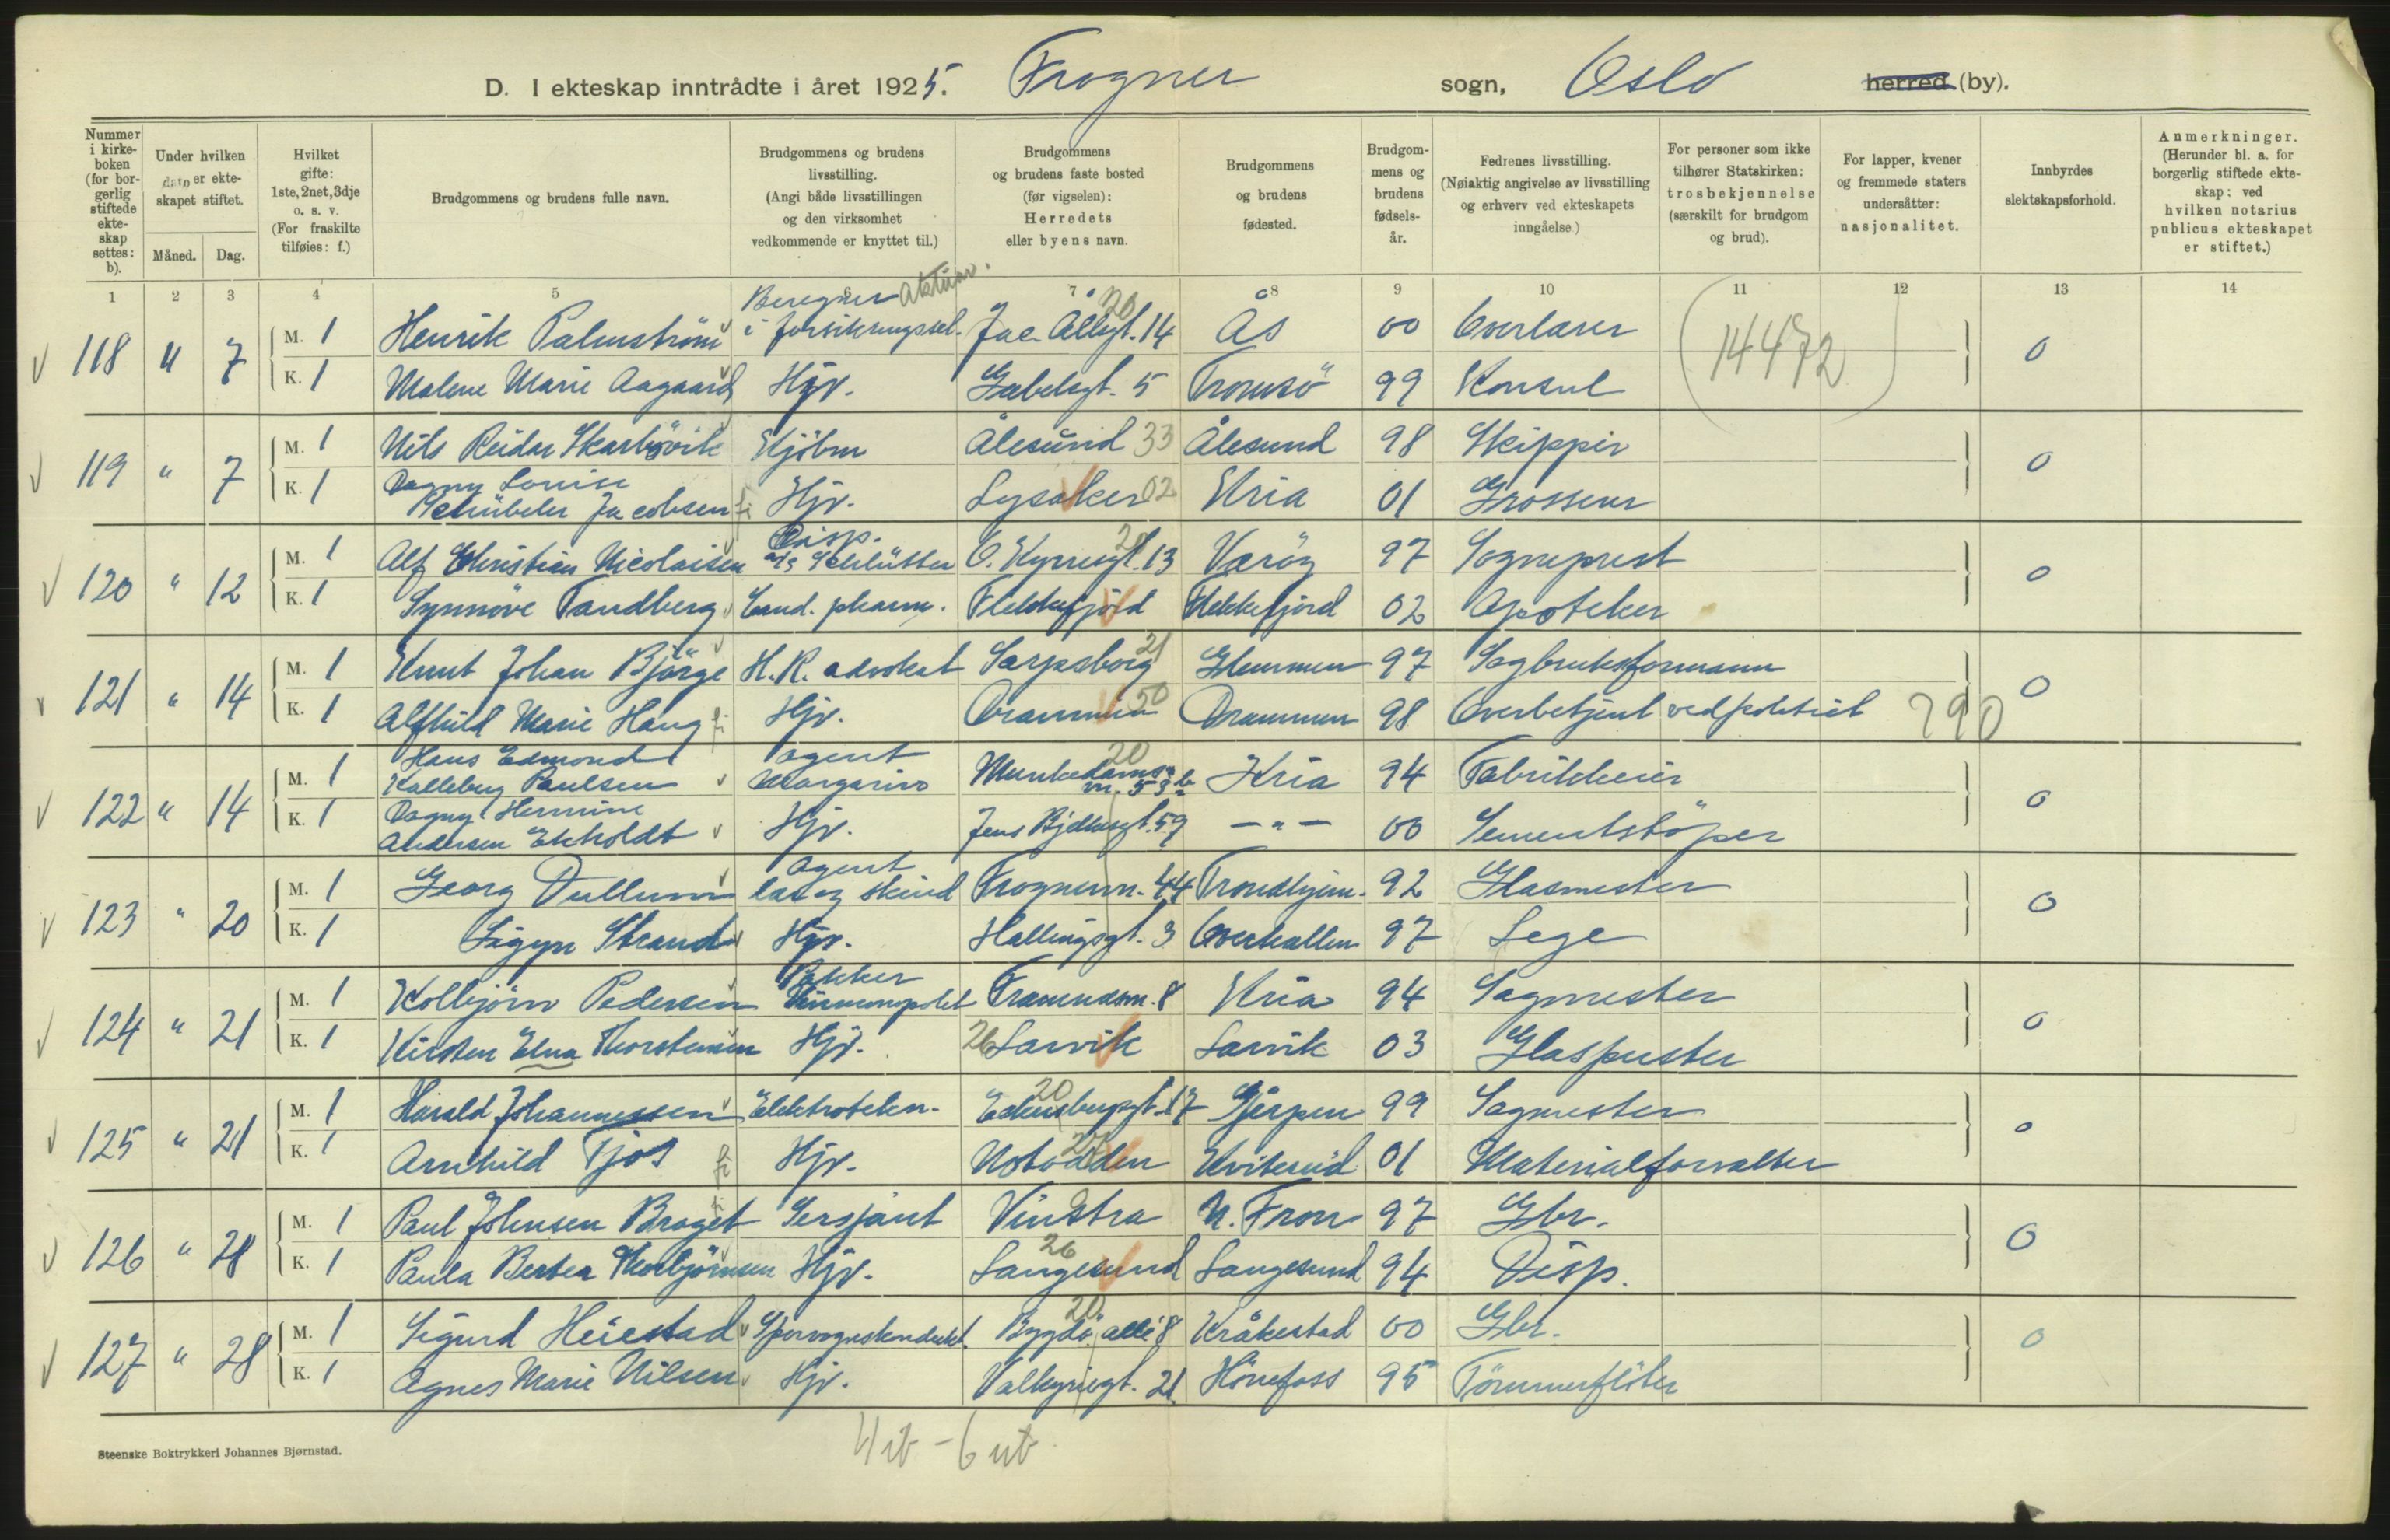 D. I ekteskap inntrådte i året 1925. Frogner sogn, Oslo herred (by).
Nummer i kirkeboken (for borgerlig stiftede ekteskap settes: b).
Under hvilken dato er ekteskapet stiftet.
Måned. Dag.
Hvilket gifte: 1ste, 2net, 3dje o. s. v. (For fraskilte tilføies: f.)
Brudgommens og brudens fulle navn.
Brudgommens og brudens livsstilling. (Angi både livsstillingen og den virksomhet vedkommende er knyttet til.)
Brudgommens og brudens faste bosted (før vigselen): Herredets eller byens navn.
Brudgommens og brudens fødested.
Brudgommens og brudens fødselsår.
Fedrenes livsstilling. (Nøiaktig angivelse av livsstilling og erhverv ved ekteskapets inngåelse)
For personer som ikke tilhører Statskirken: trosbekjennelse (særskilt for brudgom og brud).
For lapper, kvener og fremmede staters undersåtter: nasjonalitet.
Innbyrdes slektskapsforhold.
Anmerkninger. (Herunder bl. a. for borgerlig stiftede ekteskap: ved hvilken notarius publicus ekteskapet er stiftet.)
1 2 3 4 5 6 7 8 9 10 11 12 13 14
Beregner Aktuar. 20
118 4 7 M. 1 Henrik Palmström i forsikringssel. Jac. Aallsgt. 14 Ås 00 Overlærer (14472) 0
K. 1 Malene Marie Aagaard Hjv. Gabelsgt. 5 Tromsö 99 Konsul
119 " 7 M. 1 Nils Reidar Skarbövik Kjöbm Ålesund 33 Ålesund 98 Skipper 0
K. 1 Dagny Louise Schübeler Jacobsen fi Hjv. Lysaker 02 Kria 01 Grosserer
120 " 12 M. 1 Alf Christian Nicolaisen Disp. a/s Schlütter O. Kyrresgt. 13 20 Væröy 97 Sogneprest 0
K. 1 Synnöve Tandberg Cand. pharm. Flekkefjord Flekkefjord 02 Apoteker
121 " 14 M. 1 Knut Johan Björge H.R. advokat Sarpsborg 21 Glemmen 97 Sagbruksformann 0
K. 1 Alfhild Marie Haug fi Hjv. Drammen 50 Drammen 98 Overbetjent ved politiet 290
122 " 14 M. 1 Hans Edmond Kalleberg Paulsen agent Margarin Munkedamsvn. 53 b 20 Kria 94 Fabrikkeier 0
K. 1 Dagny Hermine Andersen Ekholdt Hjv. Jens Bjelkesgt. 59 — " — 00 Sementstöper
123 " 20 M. 1 Georg Dullum agent lær og skind Frognervn. 44 Trondhjem. 92 Glasmester 0
K. 1 Sigyn Strand Hjv. Hallingsgt. 3 Overhallen 97 Lege
124 " 21 M. 1 Kolbjörn Pedersen Pakker Vinmonopolet Framnesvn. 8 Kria 94 Sagmester 0
K. 1 Kirsten Elna Thorstensen Hjv. 26 Larvik Larvik 03 Glaspuster
125 " 21 M. 1 Harald Johannessen Elektrotekn. 20 Gjerpen 99 Sagmester 0
K. 1 Arnhild Tjos fi Hjv. Notodden Kviteseid 01 Materialforvalter
126 " 28 M. 1 Paul Johnsen Braget Sersjant Vinstra N. Fron 97 Gbr. 0
K. 1 Paula Bertea Thorbjörnsen Hjv. Langesund 26 Langesund 94 Disp.
127 " 28 M. 1 Sigurd Heiestad Sporvognskondukt. Bygdö allé 8 20 Kråkestad 00 Gbr. 0
K. 1 Agnes Marie Nilsen Hjv. Valkyriegt. 21. Hönefoss 95 Tömmerflöter
Steenske Boktrykkeri Johannes Bjørnstad.
4 ib - 6 ub